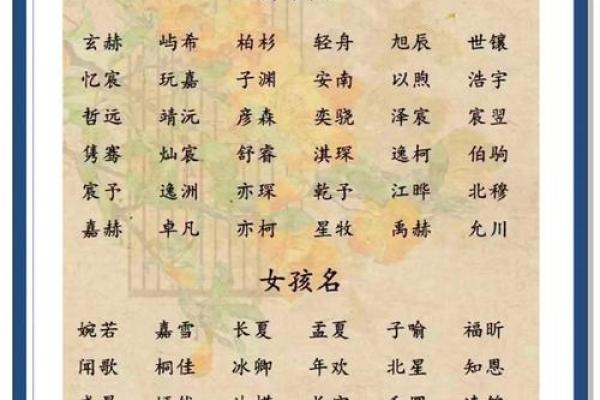 玄赫 屿希 柏杉 轻舟 旭辰 世镶
忆宸 玩嘉 子渊 安南 以煦 浩宇
哲远 靖沅 彦森 奕骁 泽宸 宸翌
隽骞 灿宸 舒睿 淇琛 逸柯 伯驹
宸予 逸洲 亦琛 乾予 江晔 北穆
嘉赫 卓凡 亦柯 星牧 禹赫 允川
女孩名
婉若 嘉雪 长夏 孟夏 子喻 福昕
闻歌 桐佳 冰卿 年欢 北星 知恩